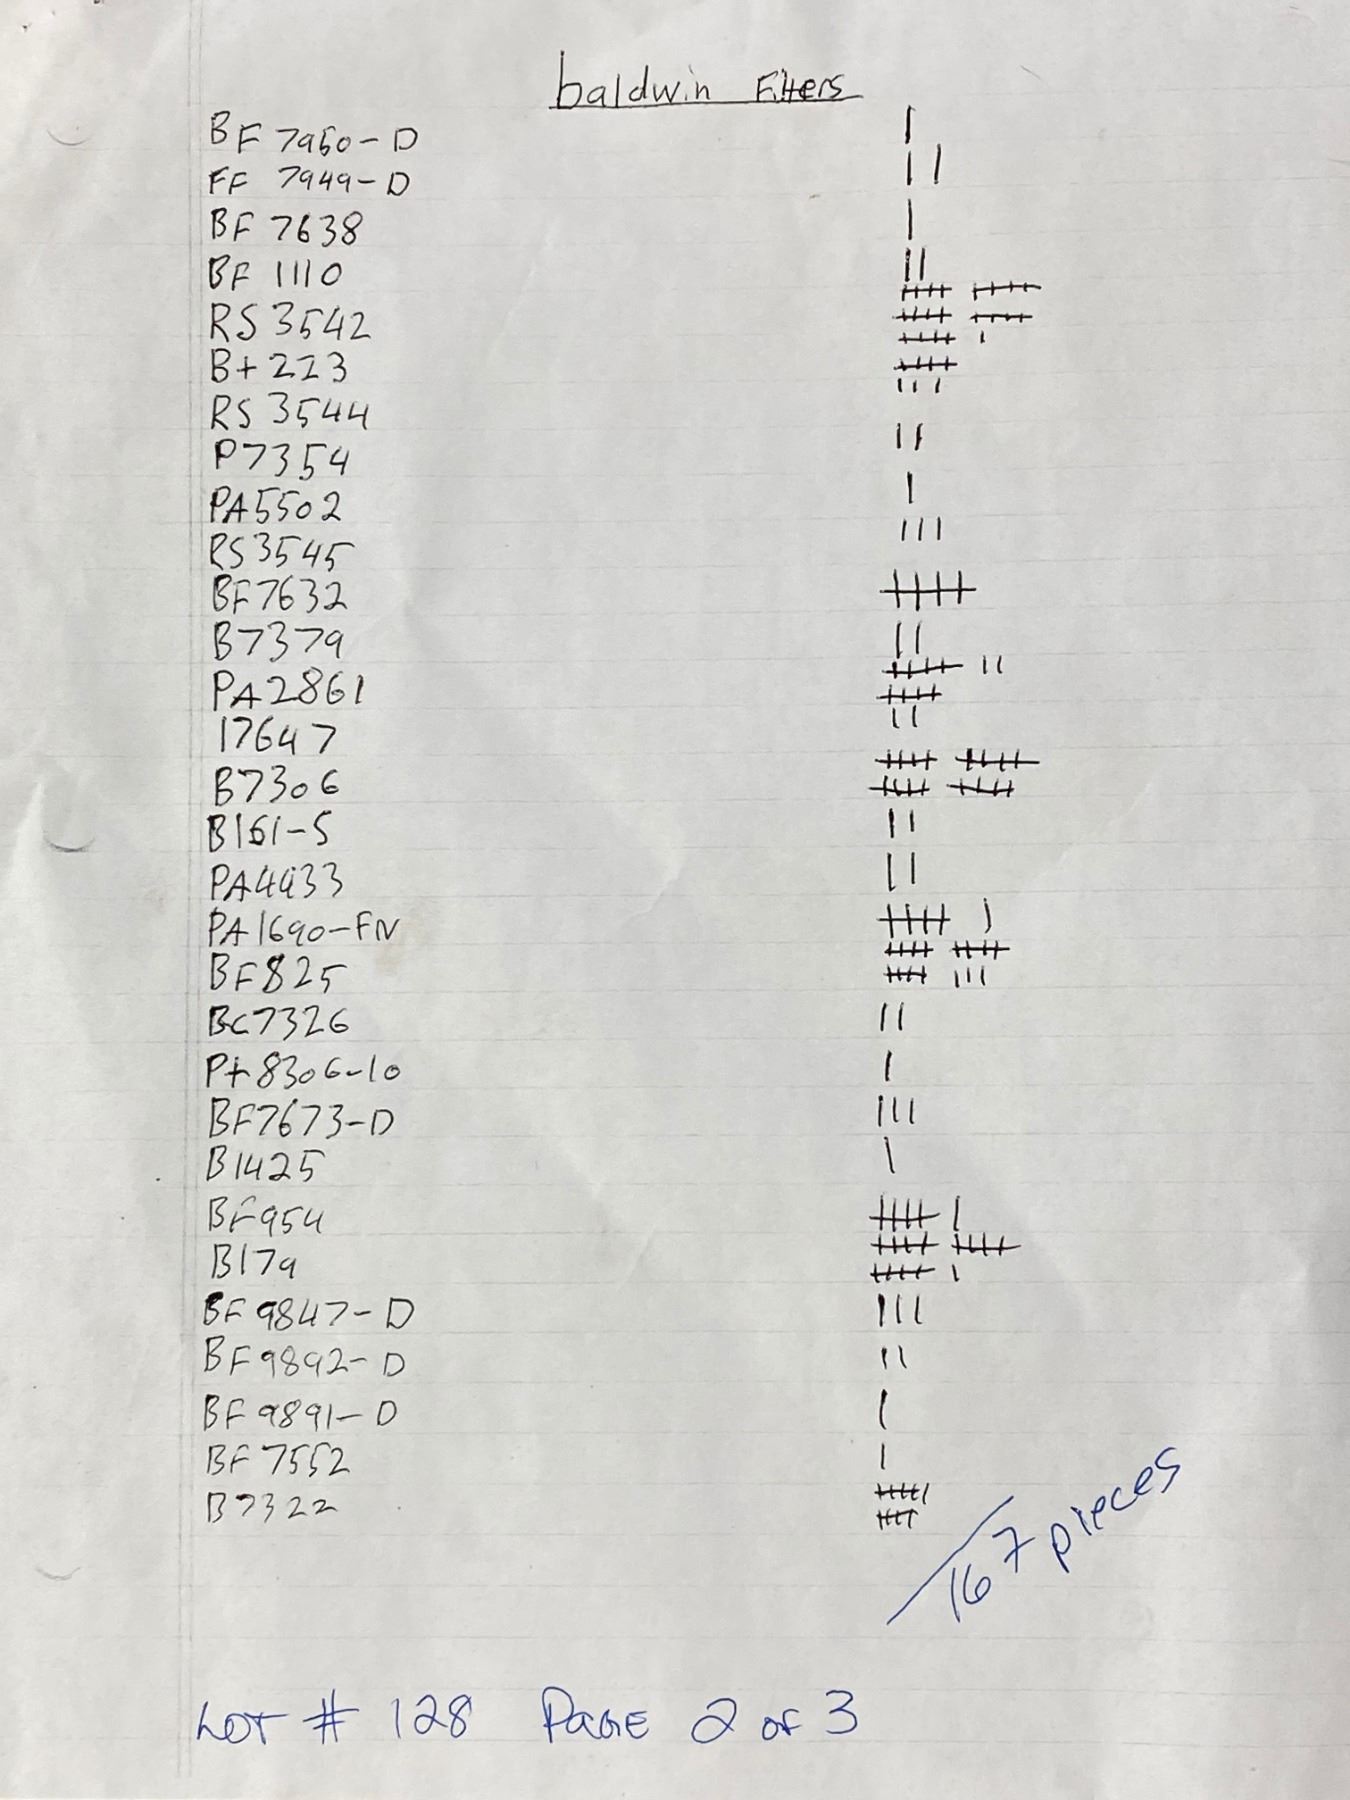 baldwin Filters
BF 7950-D |
FF 7949-D ||
BF 7638 |
BF 1110 ||
RS 3542
B+ 223
RS 3544 ||
P7354 |
PA5502 |||
RS3545
BF7632
B7379 ||
PA2861
17647
B7306
B161-S ||
PA4933 ||
PA1690-FN
BF825
BC7326 ||
Pt 8306-10 |
BF7673-D |||
B1425 |
BF954
B179
BF 9847-D |||
BF 9892-D ||
BF 9891-D |
BF 7552 |
B7322
167 pieces
LOT # 128 PAGE 2 of 3